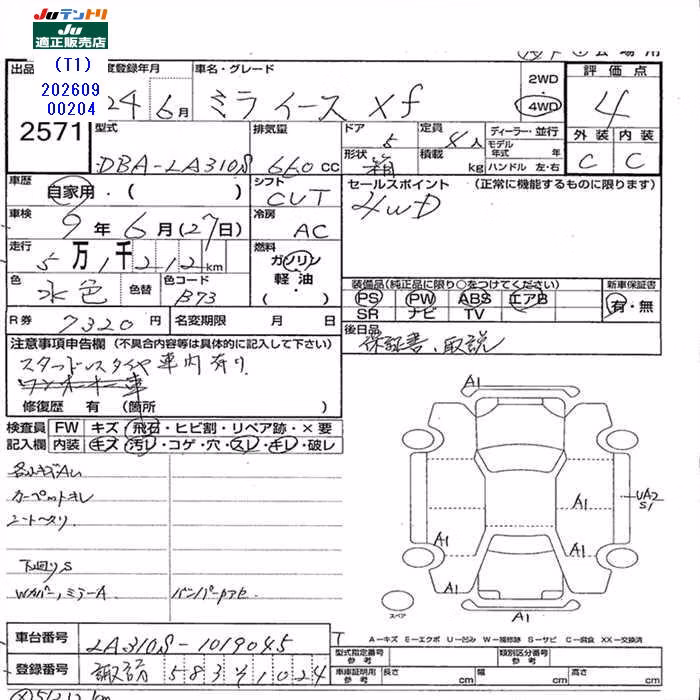 JUテントリ
JU
適正販売店
(T1)
202609
00204
出品
2571
度登録年月
24 6月
車名・グレード
ミライース Xf
2WD
4WD
評価点
4
外装 内装
C C
型式
DBA-LA310S
排気量
660 cc
ドア
5
定員
4人
形状
箱
積載
kg
ディーラー・並行
モデル
年式 年
ハンドル 左・右
車歴
自家用・( )
シフト
CVT
セールスポイント (正常に機能するものに限ります)
4WD
車検
9年6月(27日)
冷房
AC
走行
5万1千212km
燃料
ガソリン
軽油
・( )
色
水色
色替
色コード
B73
装備品(純正品に限り○をつけてください)
PS PW ABS エアB
SR ナビ TV
新車保証書
有・無
R券 7320円
名変期限 月 日
後日品
保証書、取説
注意事項申告欄 (不具合内容等は具体的に記入して下さい)
スタッドレスタイヤ車内有り
ワンオーナー車
修復歴 有 (箇所 )
検査員 FW キズ・飛石・ヒビ割・リペア跡・×要
記入欄 内装 キズ・汚レ・コゲ・穴・スレ・キレ・破レ
カーペットキレ
シートヘタリ
下回りS
Wカバー、ミラーA
A1
A1
A1
A1
UA2
S1
A1
A1
A1
スペア
車台番号 LA310S-1019045
登録番号 諏訪 583 1024
A-キズ E-エクボ U-凹み W-補修跡 S-サビ C-腐食 XX-交換済
型式指定番号
参考
類別区分番号
参考
車庫証明用
参考
長さ cm
幅 cm
高さ cm